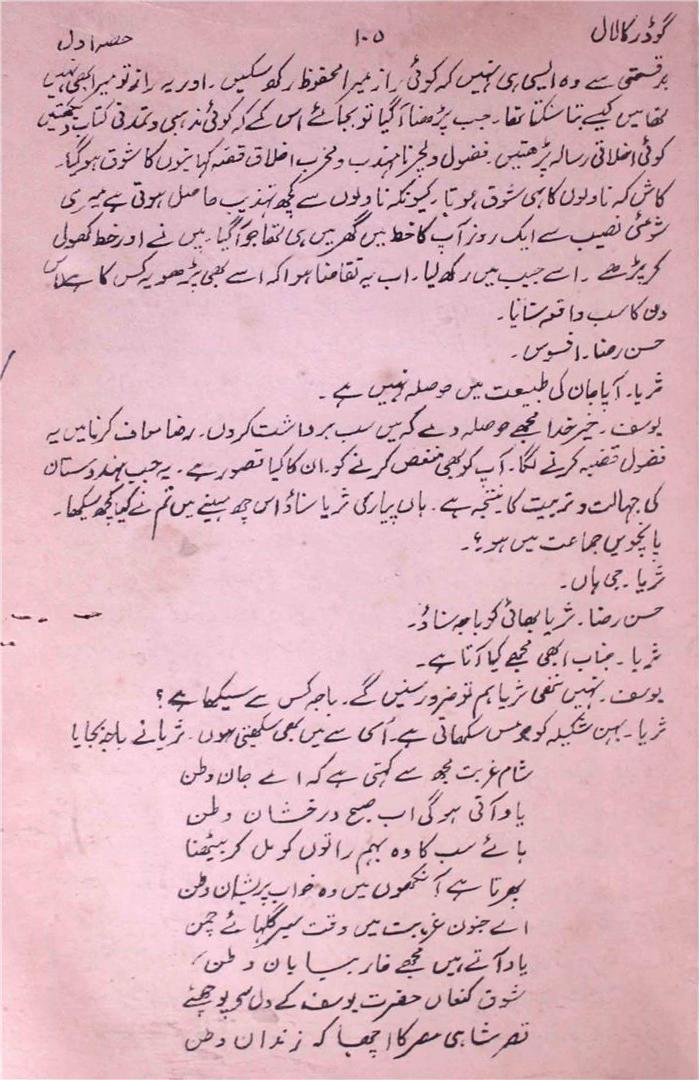 گوڈر کا لال ۱۰۵ حصہ اول
بدقسمتی سے وہ ایسی ہی نہیں کہ کوئی راز میرا محفوظ رکھ سکیں۔ اور یہ راز تو میرا بھی نہیں
تھا میں کیسے بتا سکتا تھا۔ جب پڑھنا آگیا تو بجائے اس کے کہ کوئی مذہبی و تمدنی کتاب دیکھتیں
کوئی اخلاقی رسالہ پڑھتیں۔ فضول و لچر نامہذب و مخرب اخلاق قصہ کہانیوں کا شوق ہوگیا۔
کاش کہ ناولوں کا ہی شوق ہوتا۔ کیونکہ ناولوں سے کچھ تہذیب حاصل ہوتی ہے میری
شومئی نصیب سے ایک روز آپ کا خط میں گھر میں ہی تھا جو آگیا۔ میں نے اور خط کھول
کر پڑھے۔ اسے جیب میں رکھ لیا۔ اب یہ تقاضا ہوا کہ اسے بھی پڑھو یہ کس کا ہے اس
دن کا سب واقعہ سنایا۔
حسن رضا۔ افسوس۔
ثریا۔ آپا جان کی طبیعت میں حوصلہ نہیں ہے۔
یوسف۔ خیر خدا مجھے حوصلہ دے کہ میں سب برداشت کروں۔ رضا معاف کرنا میں یہ
فضول قضیہ کرنے لگا۔ آپ کو بھی منغص کرنے کو۔ ان کا کیا قصور ہے۔ یہ سب ہندوستان
کی جہالت و تربیت کا نتیجہ ہے۔ ہاں پیاری ثریا سناؤ اس چھ مہینے میں تم نے کیا کچھ سیکھا۔
پانچویں جماعت میں ہو؟۔
ثریا۔ جی ہاں۔
حسن رضا۔ ثریا بھائی کو باجہ سناؤ۔
ثریا۔ جناب ابھی مجھے کیا آتا ہے۔
یوسف۔ نہیں ننھی ثریا ہم تو ضرور سنیں گے۔ باجہ کس سے سیکھا ہے؟
ثریا۔ بہن شکیلہ کو جو مس سکھاتی ہے۔ اُسی سے میں بھی سیکھتی ہوں۔ ثریا نے باجہ بجایا
شام غربت مجھ سے کہتی ہے کہ اے جان وطن
یاد آتی ہوگی اب صبح درخشان وطن
ہائے سب کا وہ بہم راتوں کو مل کر بیٹھنا
پھرتا ہے آنکھوں میں وہ خواب پریشان وطن
اے جنون غربت میں وقت سیر گلہائے چمن
یاد آتے ہیں مجھے خار بیابان وطن
شوق کنعاں حضرت یوسف کے دل سے پوچھئے
قصر شاہی مصر کا اچھا کہ زندان وطن